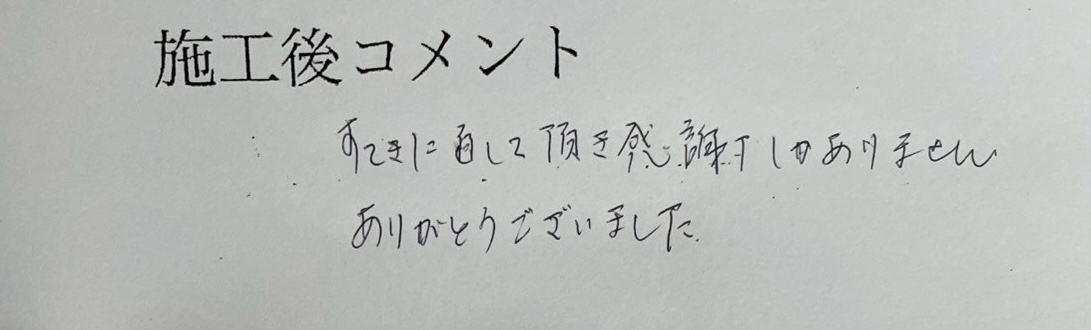 施工後コメント
すてきに直して頂き感謝しかありません
ありがとうございました